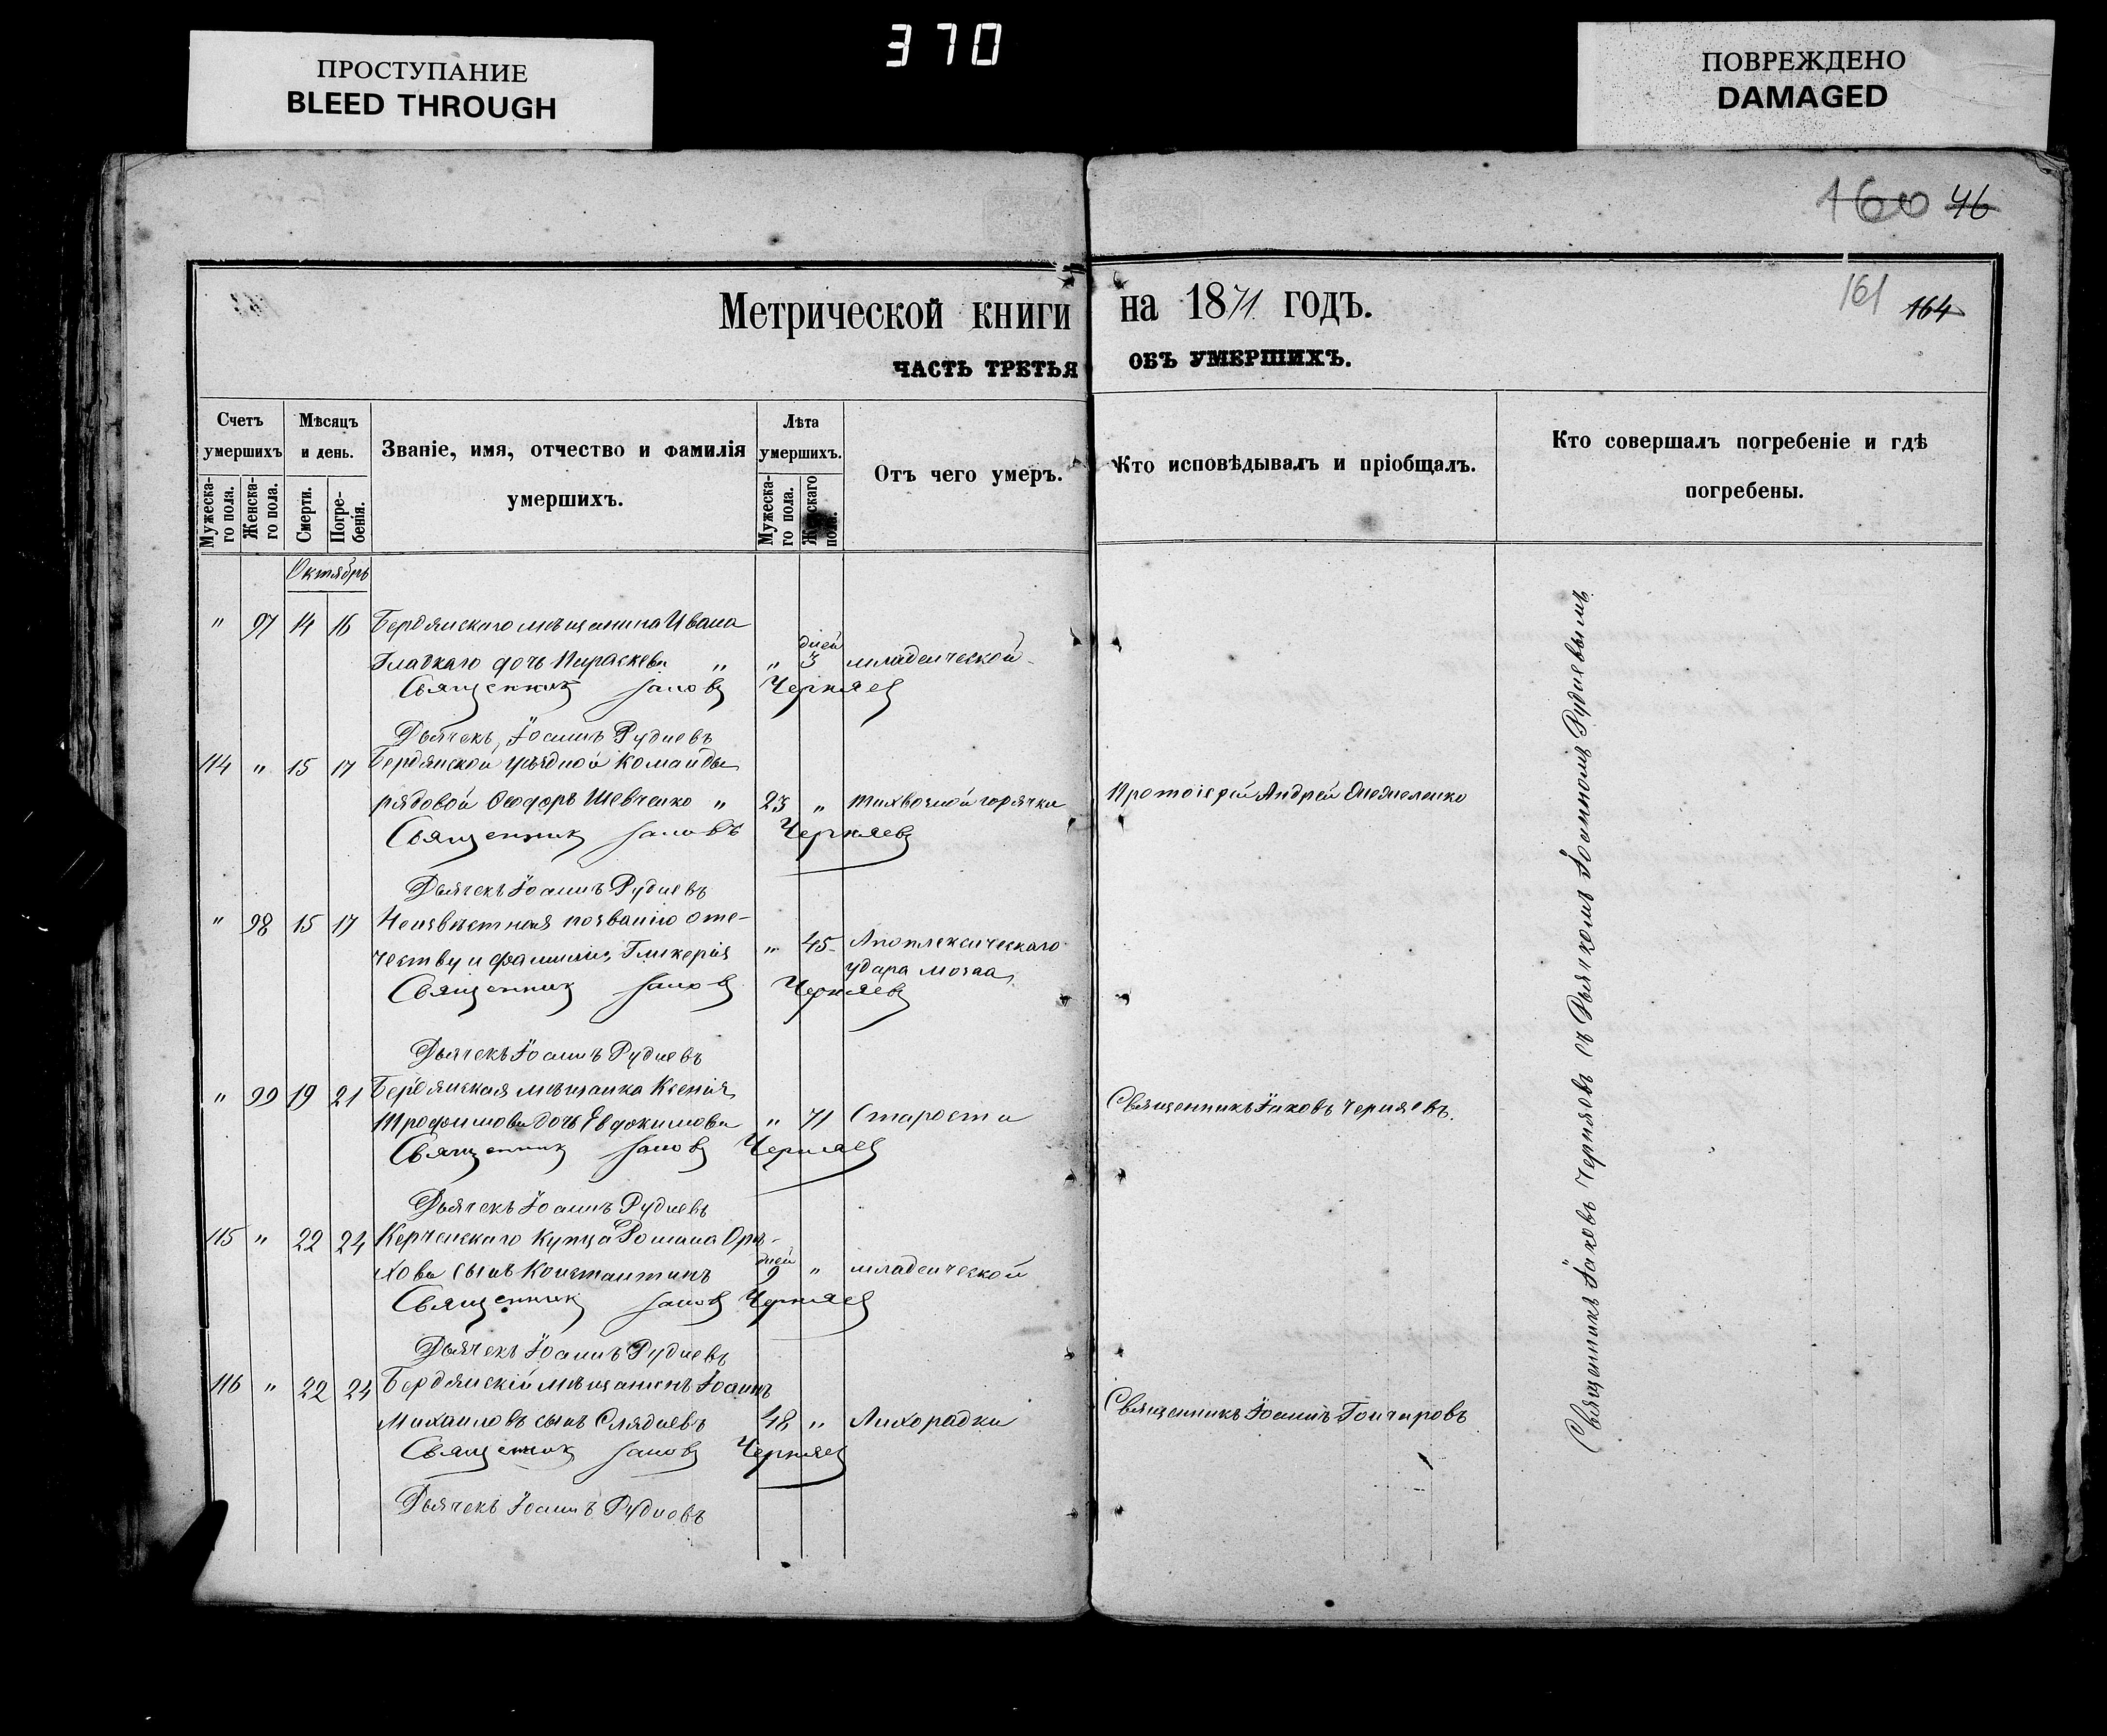 ПРОСТУПАНИЕ
BLEED THROUGH
370
ПОВРЕЖДЕНО
DAMAGED
160 46
161 164
Метрической книги на 1871 годъ.
ЧАСТЬ ТРЕТЬЯ ОБЪ УМЕРШИХЪ.
Счетъ умершихъ
Мужеска-го пола.
Женска-го пола.
Мѣсяцъ и день.
Смерти.
Погре-бенія.
Званіе, имя, отчество и фамилія умершихъ.
Лѣта умершихъ.
Мужеска-го пола.
Женскаго пола.
Отъ чего умеръ.
Кто исповѣдывалъ и пріобщалъ.
Кто совершалъ погребеніе и гдѣ погребены.
Октябрь
" 97 14 16 Бердянскаго мѣщанина Ивана
Гладкаго дочь Параскева " " дней 3 младенческой
Священник Іаков Черняев
Дьячекъ Іоаннъ Рудневъ
114 " 15 17 Бердянской уѣздной команды
рядовой Ѳеодоръ Шевченко " 23 " горячки Протоіерей Андрей
Священник Іаковъ Черняевъ
Дьячекъ Іоаннъ Рудневъ
" 98 15 17 Неизвѣстная по званію оте-
честву и фамиліи, Гликерія " 45 Апоплексическаго
удара мозга
Священник Іаков Черняев
Дьячекъ Іоаннъ Рудневъ
" 99 19 21 Бердянская мѣщанка Ксенія
Трофимова дочь Евдокимова " 71 Старости Священникъ Іаковъ Черняевъ.
Священник Іаков Черняев
Дьячекъ Іоаннъ Рудневъ
115 " 22 24 Керченскаго купца Романа Орѣ-
хова сынъ Константинъ дней 9 " младенческой
Священник Іаков Черняев
Дьячекъ Іоаннъ Рудневъ
116 " 22 24 Бердянскій мѣщанинъ Іоаннъ
Михаиловъ сынъ Слядневъ 48 " Лихорадки Священникъ Іоаннъ Гончаровъ
Священник Іаков Черняев
Дьячекъ Іоаннъ Рудневъ
Священникъ Іаковъ Черняевъ съ Дьячкомъ Іоанномъ Рудневымъ